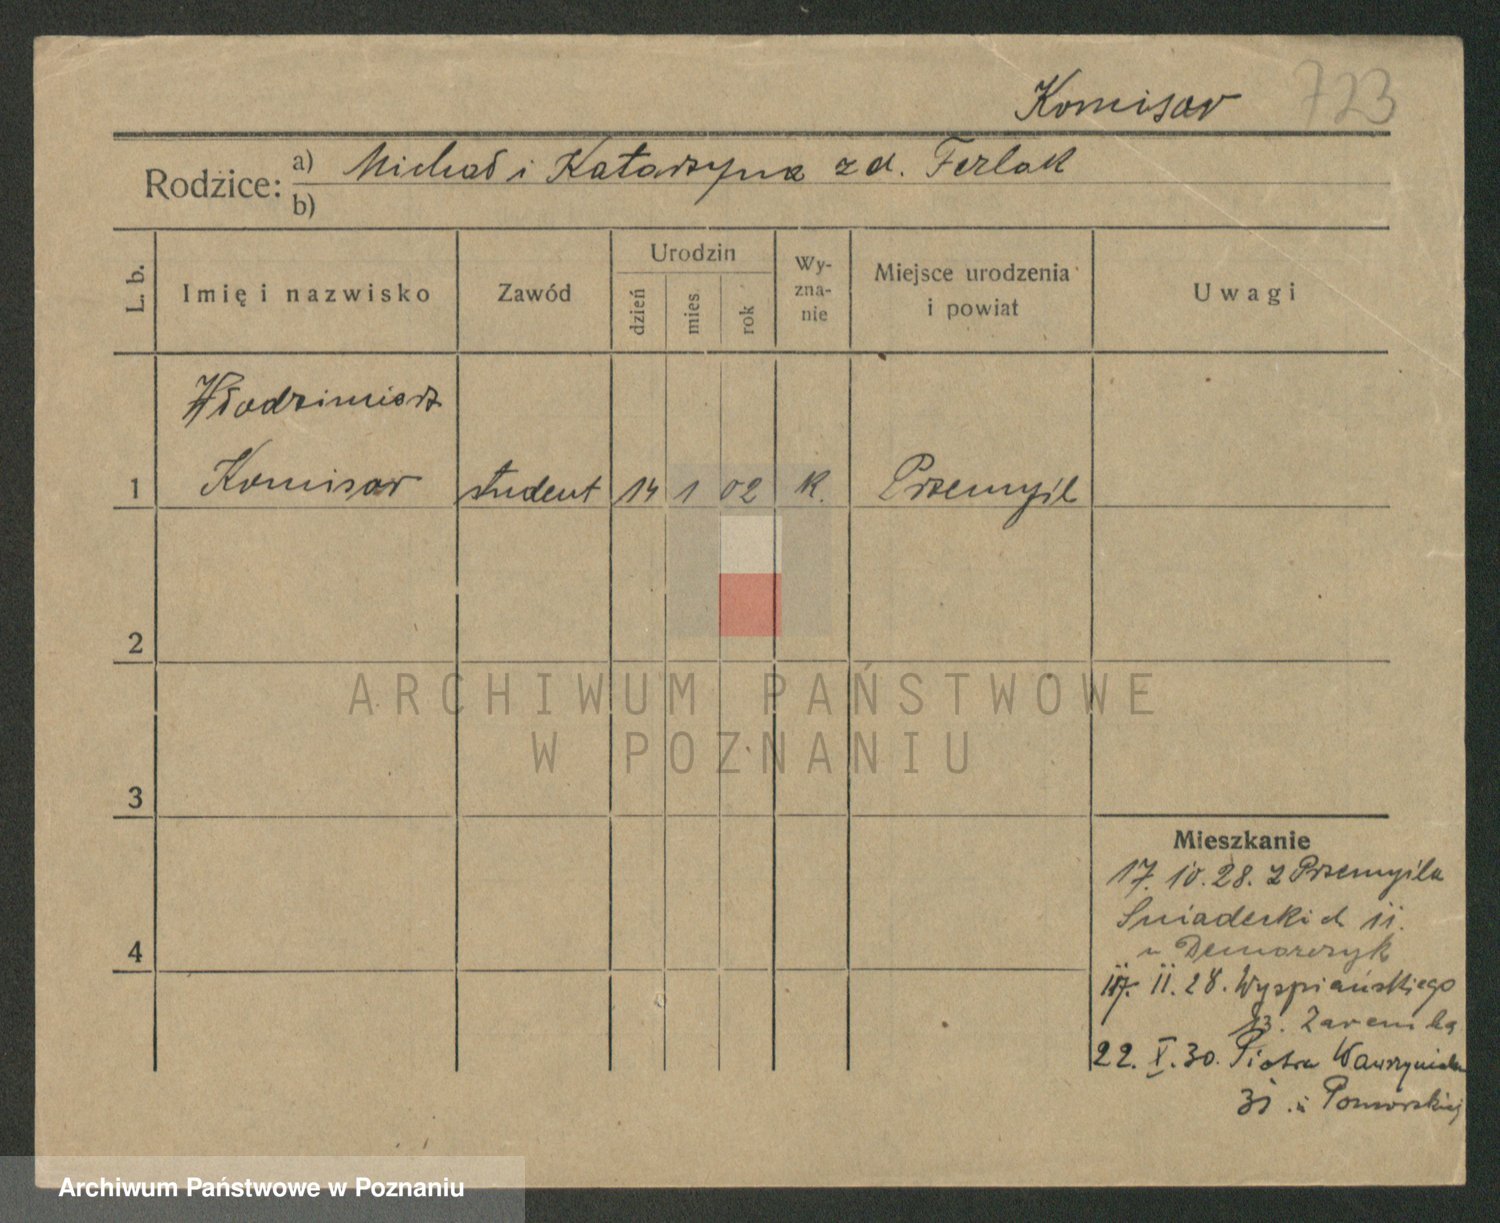 Komisar 723
Rodzice: a) Michał i Katarzyna z d. Ferlak
b)
L. b.
Imię i nazwisko
Zawód
Urodzin
dzień
mies.
rok
Wy-
zna-
nie
Miejsce urodzenia
i powiat
Uwagi
Włodzimierz
1 Komisar student 14 1 02 k. Przemyśl
2
ARCHIWUM PAŃSTWOWE
W POZNANIU
3
Mieszkanie
17. 10. 28. z Przemyśla
Śniadeckich 11.
u
4
11. 28. Wyspiańskiego
22. X. 30. Piotra Wawrzyniaka
Archiwum Państwowe w Poznaniu